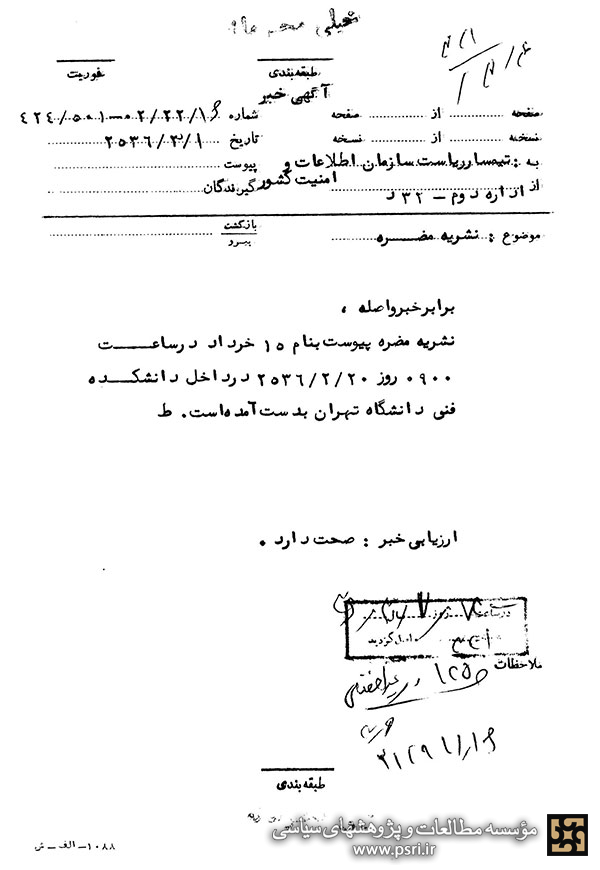 خیلی محرمانه
طبقه‌بندی
فوریت
آگهی خبر
صفحه از صفحه
شماره ۴۲۴/۵۰۱-۰۲/۲۲/۱۶
نسخه از نسخه
تاریخ ۲۵۳۶/۳/۱
به : تیمسار ریاست سازمان اطلاعات و امنیت کشور
پیوست
از اداره دوم – ۳۲ د
گیرندگان
موضوع : نشریه مضره
بازگشت
پیرو
برابر خبر واصله ،
نشریه مضره پیوست بنام ۱۵ خرداد در ساعت
۰۹۰۰ روز ۲۵۳۶/۲/۲۰ در داخل دانشکده
فنی دانشگاه تهران بدست آمده‌است. ط
ارزیابی خبر : صحت دارد .
در ساعت روز
واصل گردید
ملاحظات
طبقه‌بندی
مؤسسه مطالعات و پژوهشهای سیاسی
www.psri.ir
۱۰۸۸ – الف – ش